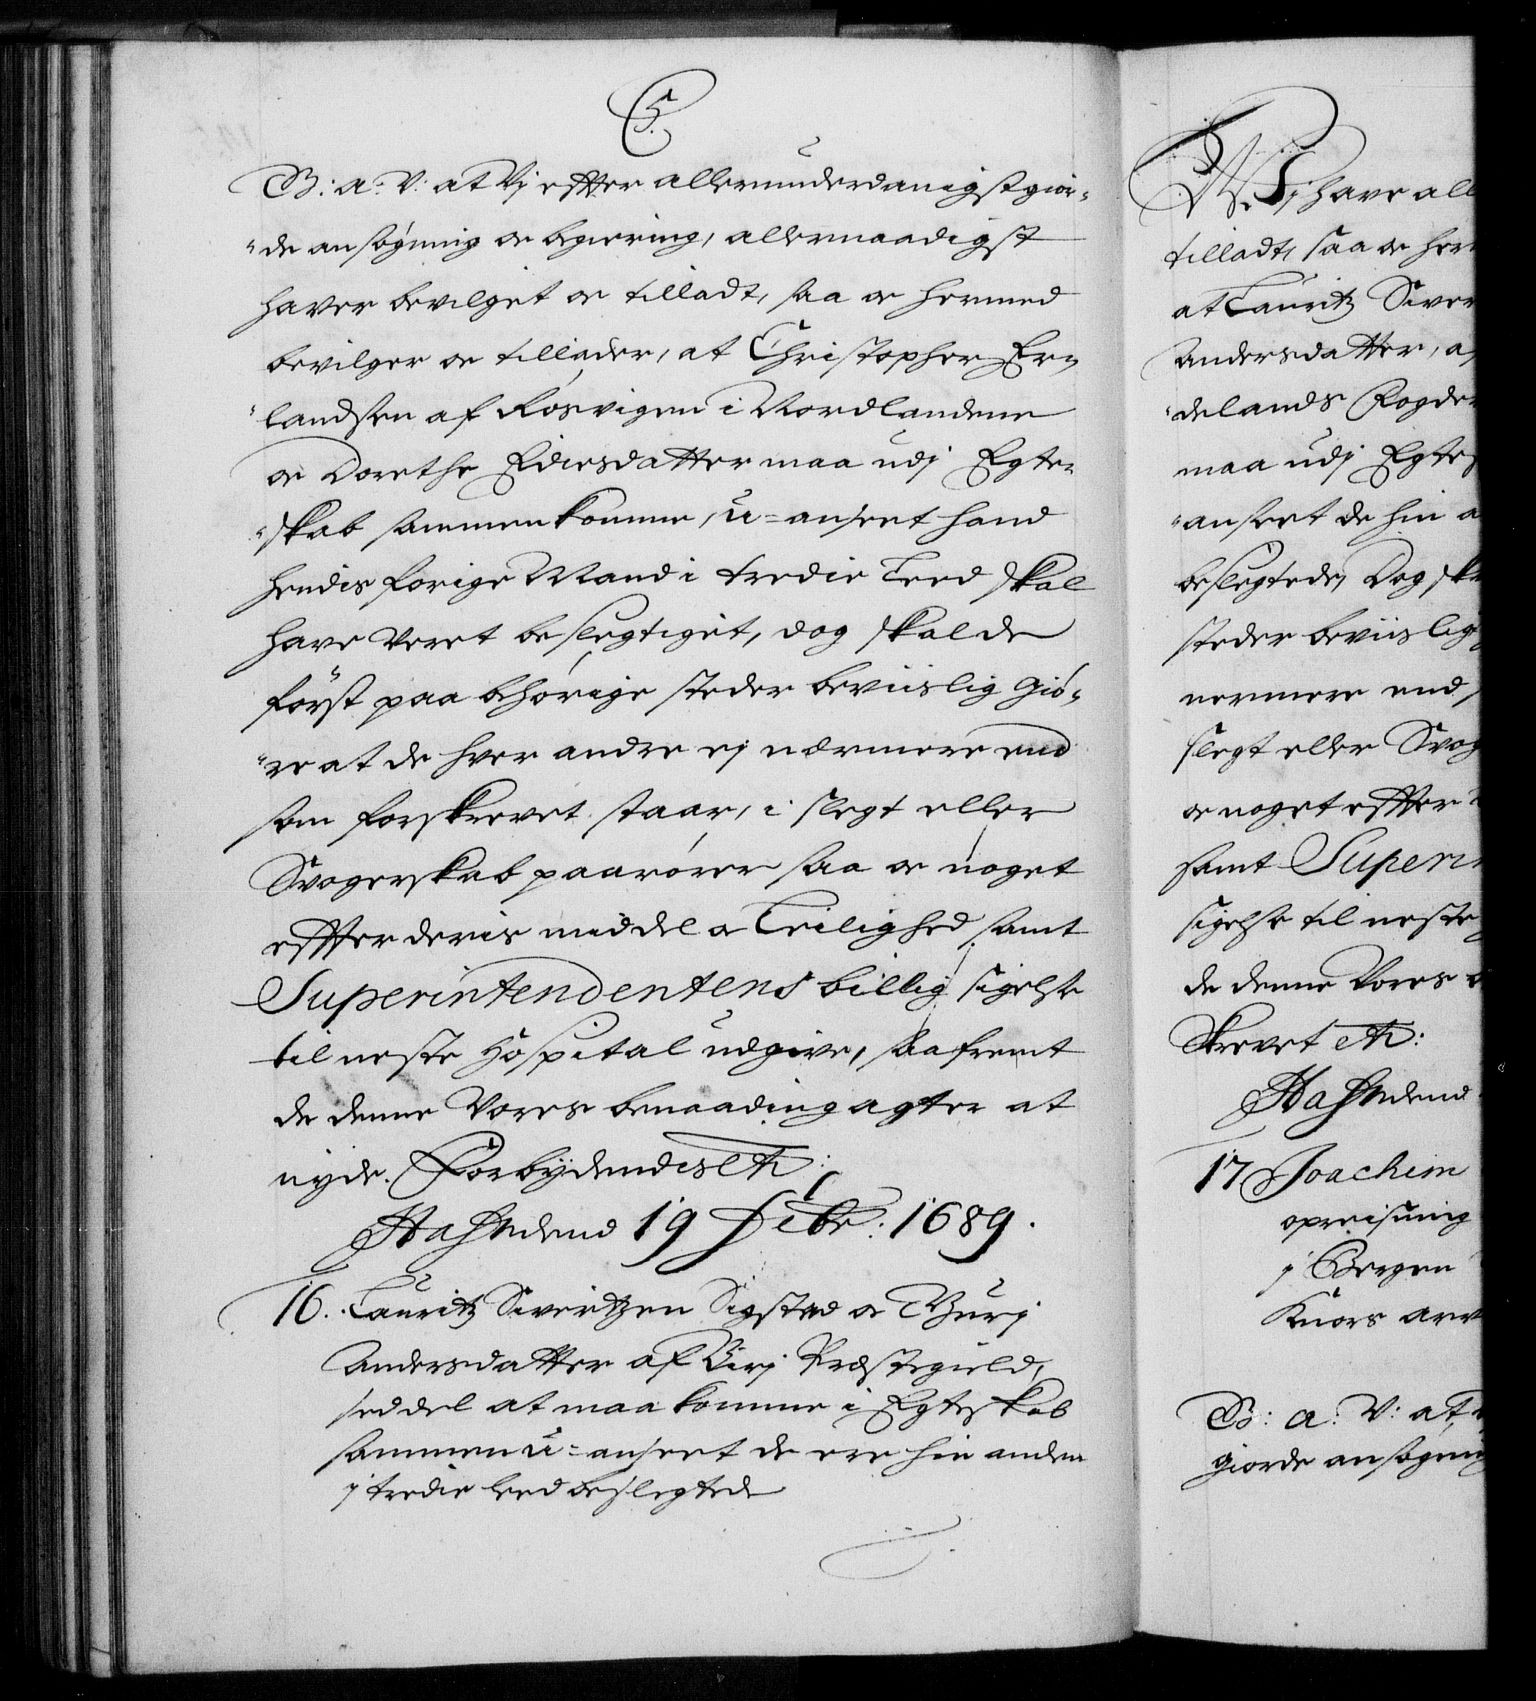 C5.
G: a: V: at Vj effter allerunderdanigst gior-
de ansøgning oc begiering, allernaadigst
haver bevilget oc tilladt, saa oc hermed
bevilger oc tillader, at Christopher Er-
landsen af Rosvigen i Nordlandene
oc Dorethe Eidisdatter maa udj Egte-
skab sammenkomme, u-anseet hand
hendis forige Mand i tredie Leed skal
have veret beslegtiget, dog skal de
først paa behørige steder beviislig giø-
re at de hver andre ej nærmere end
som forskrevet staar, i slegt eller
Svogerskab paarører saa oc noget
effter deris middel oc Leilighed samt
Superintendentens billig sigelse
til neste Hospital udgive, saafremt
de denne Vores benaading agter at
nyde. Forbydendes etc:
Hafn den 19 Febr: 1689.
16. Lauritz Sivertzen Sigstad oc Guri
Andersdatter af Birj Præstegield,
seddel at maa komme i Egteskab
sammen u-anseet de ere hin anden
j tredie Leed beslegtede
Vj have all
tilladt, saa oc her
at Lauritz Siver
Andersdatter, a
delands Fogder
maa udj Egte
anseet de hin a
beslegtede, Dog sk
steder beviislig
nermere end
slegt eller Svog
oc noget effter
samt Superin
sigelse til neste
de denne Vores
Skrevet etc:
Hafn den
17 Joachim
opreisning
j Bergen
Knørs arv
G: a: V: at
giorde ansøgning